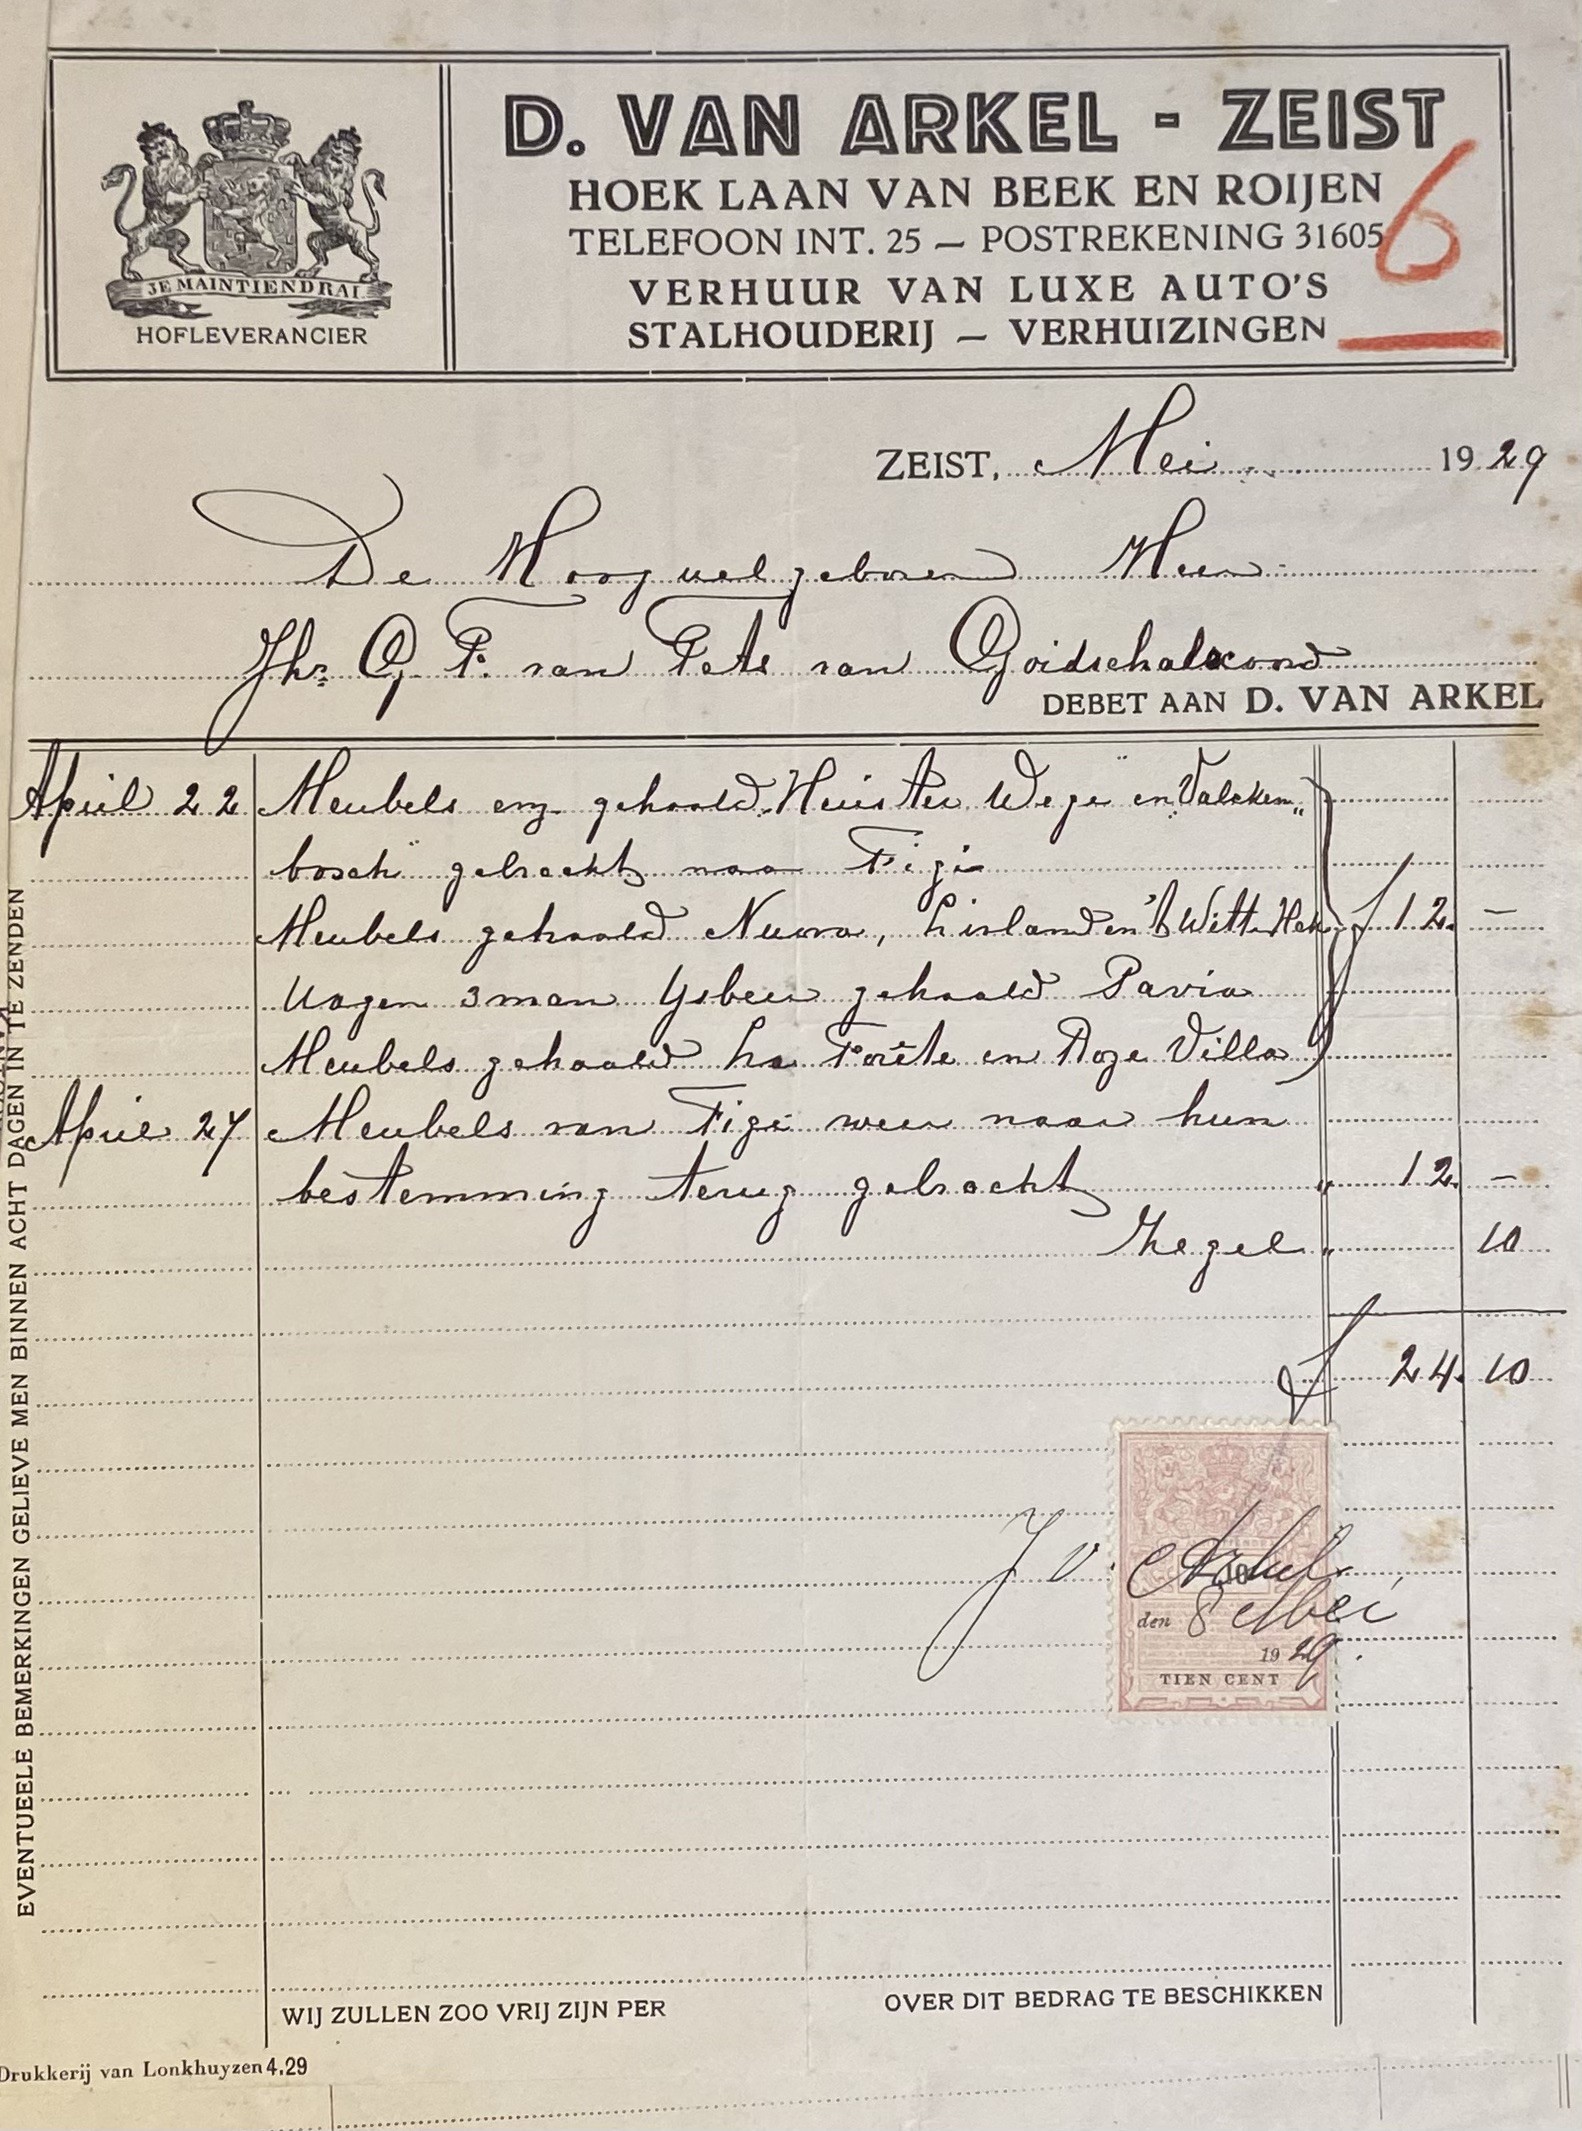 D. VAN ARKEL - ZEIST
HOEK LAAN VAN BEEK EN ROIJEN
TELEFOON INT. 25 — POSTREKENING 31605
VERHUUR VAN LUXE AUTO'S
STALHOUDERIJ — VERHUIZINGEN
6
JE MAINTIENDRAI
HOFLEVERANCIER
ZEIST, Mei 1929
De Hoogwelgeboren Heer
Jhr. G. F. van Tets van Goidschalxoord
DEBET AAN D. VAN ARKEL
April 22 Meubels enz. gehaald Huis ter Wege en Valcken„
bosch gebracht naar Figi
Meubels gehaald Nuova, Linland en 't Witte Hek f 12. —
Wagen 3 man Ysbeer gehaald Pavia
Meubels gehaald La Forête en Roze Villa
April 27 Meubels van Figi weer naar hun
bestemming terug gebracht „ 12. —
Zegel „ 10
f 24. 10
J v. Arkel
10
den 8 Mei
1929
TIEN CENT
EVENTUEELE BEMERKINGEN GELIEVE MEN BINNEN ACHT DAGEN IN TE ZENDEN
WIJ ZULLEN ZOO VRIJ ZIJN PER OVER DIT BEDRAG TE BESCHIKKEN
Drukkerij van Lonkhuyzen 4.29